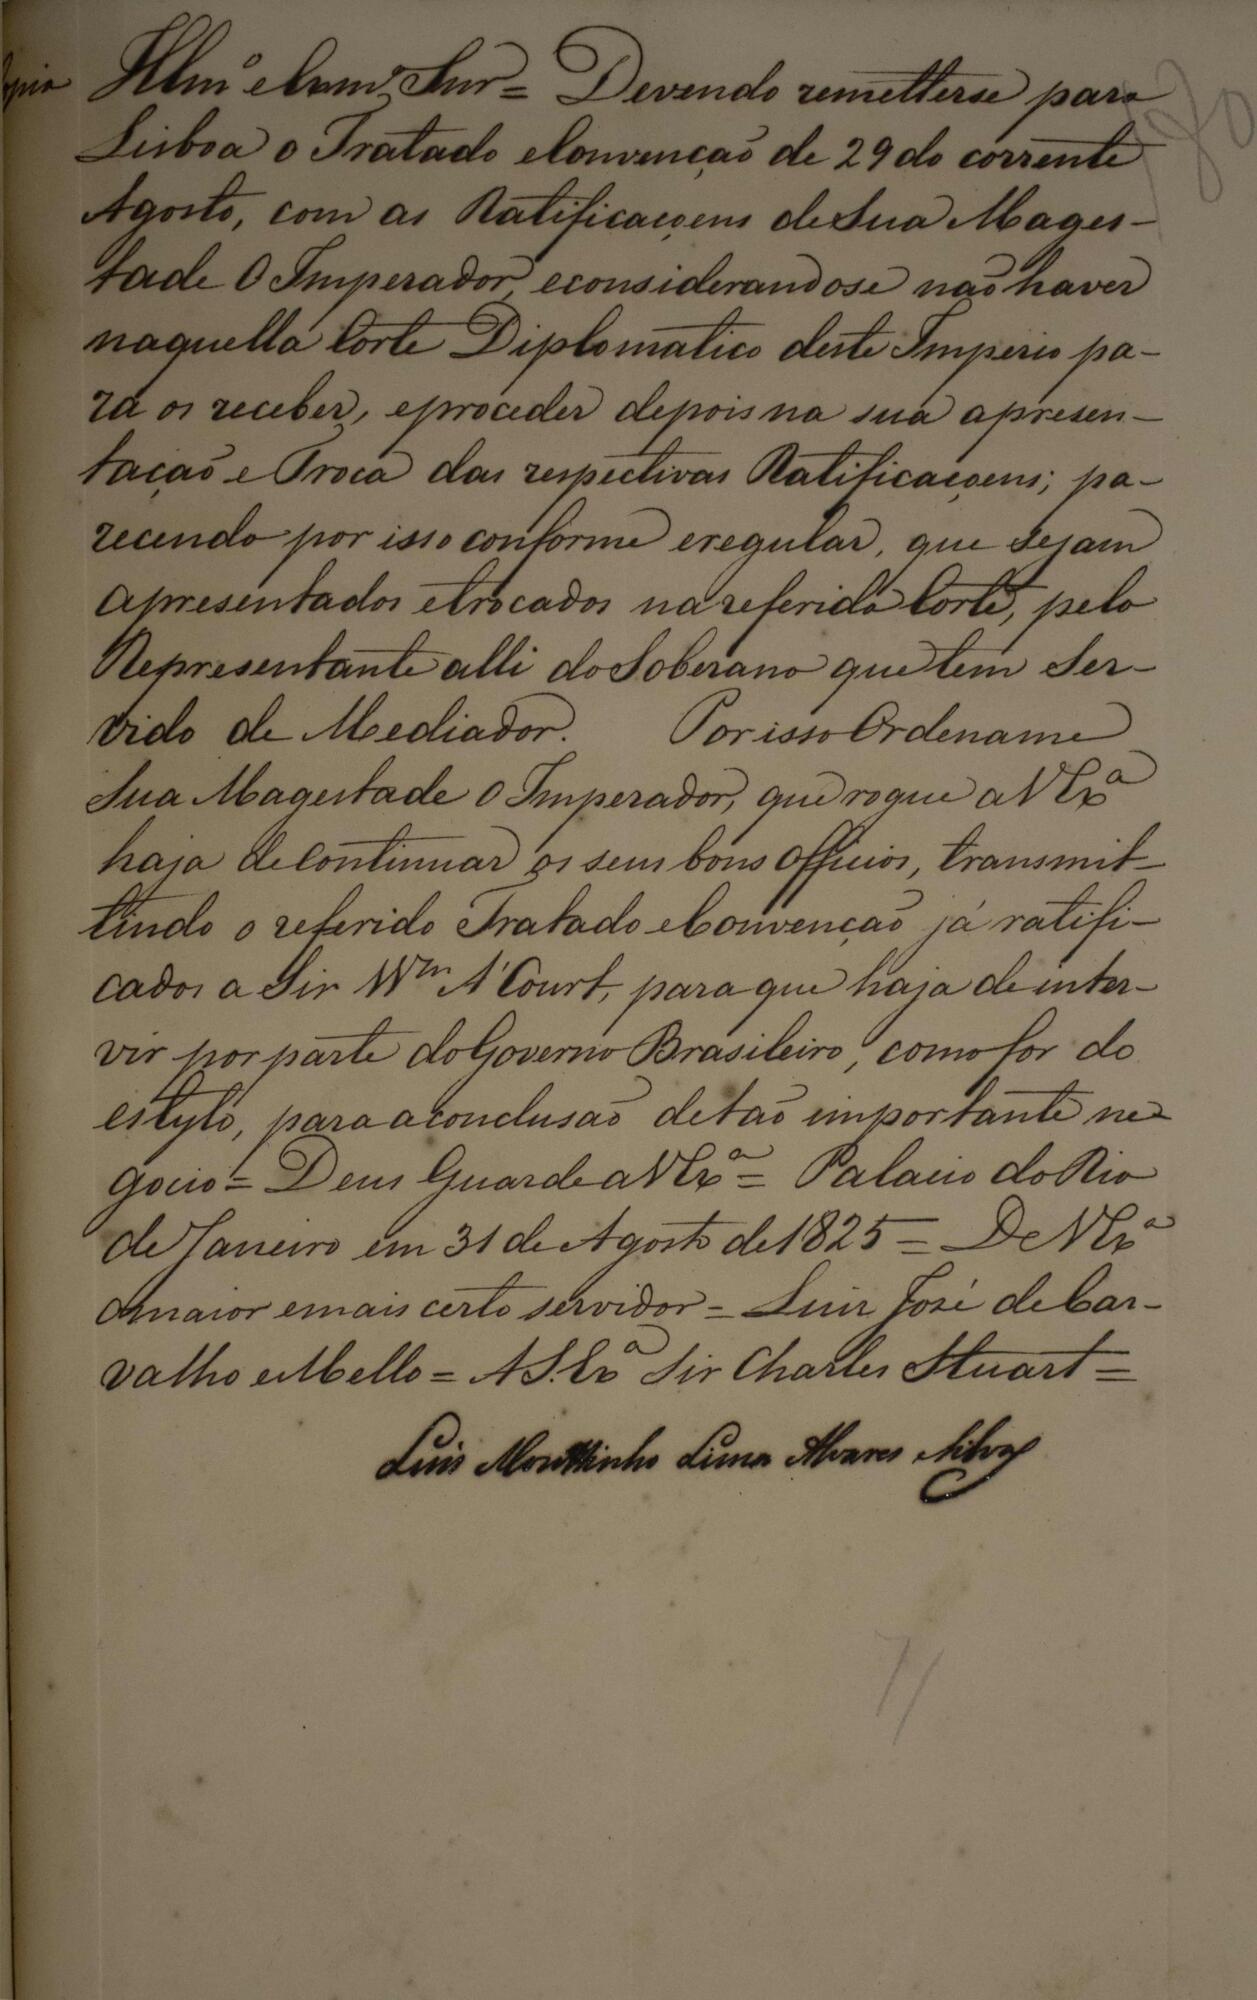 Illmº e Exmº Snr = Devendo remetterse para
Lisboa o Tratado e Convenção de 29 do corrente
Agosto, com as Ratificaçoens de Sua Mages-
tade O Imperador, e considerandose não haver
naquella Corte Diplomatico deste Imperio pa-
ra os receber, e proceder depois na sua apresen-
tação e Troca das respectivas Ratificaçoens; pa-
recendo por isso conforme e regular, que sejam
apresentados e trocados na referida Corte, pelo
Representante alli do Soberano que tem Ser-
vido de Mediador. Por isso Ordename
Sua Magestade O Imperador, que rogue a V Exª
haja de Continuar os seus bons Officios, transmit-
tindo o referido Tratado e Convenção já ratifi-
cados a Sir Wm A'Court, para que haja de inter-
vir por parte do Governo Brasileiro, como for do
estylo, para a conclusão de tão importante ne-
gocio = Deus Guarde a V Exª = Palacio do Rio
de Janeiro em 31 de Agosto de 1825 = De V Exª
o maior e mais certo servidor = Luiz José de Car-
valho e Mello = A S. Exª Sir Charles Stuart =
Luis Mouttinho Lima Alvares e Silva
71